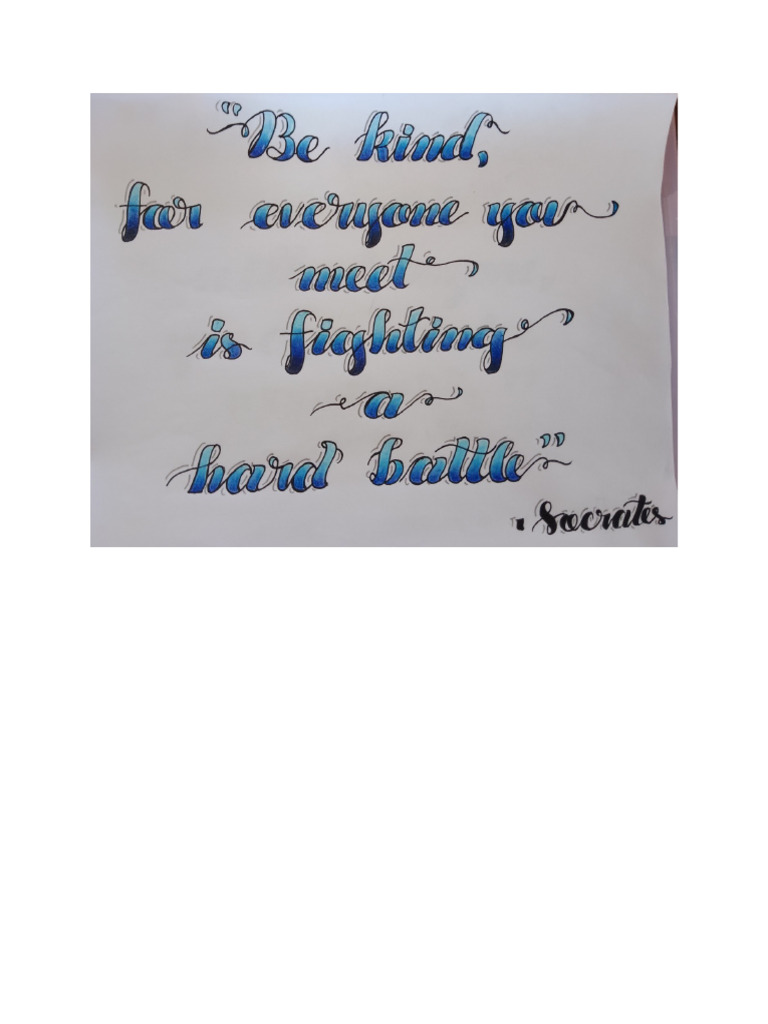 "Be kind,
for everyone you
meet
is fighting
a
hard battle"
. Socrates